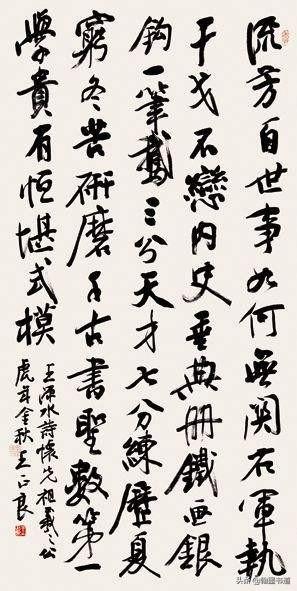 流芳百世事如何無関右軍執
干戈不戀内史垂典册鐵画銀
鈎一筆鵞三分天才七分練歷夏
窮冬苦研磨千古書聖數第一
學貴有恒堪式模
王水詩懷先祖羲之公
虎年金秋王正良
头条 @翰墨书道